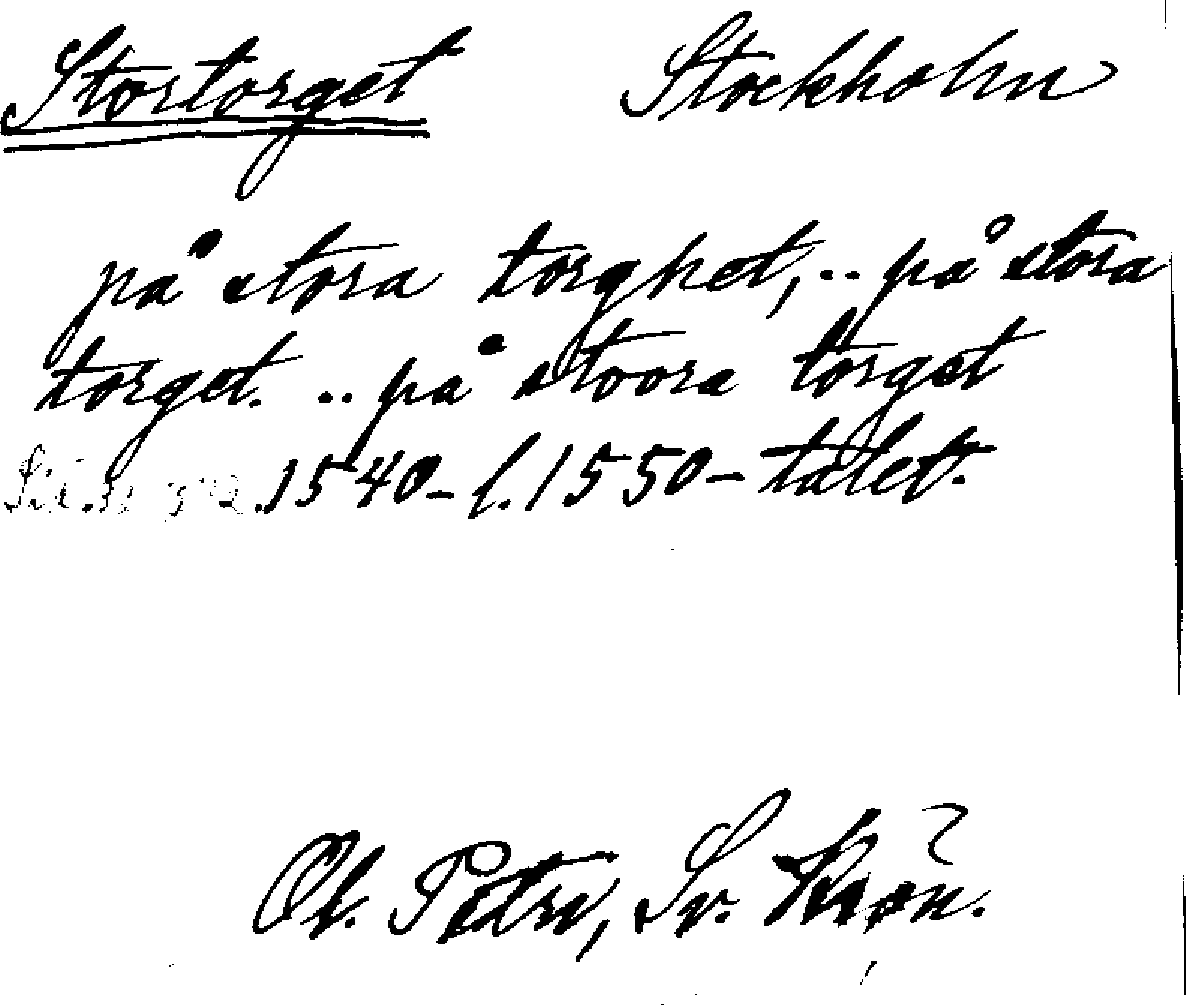 Stortorget Stockholm
på stora torghet, .. på stora
torget. .. på stoora torget
1540- l. 1550-talet.
Ol. Petri, Sv. Krön.